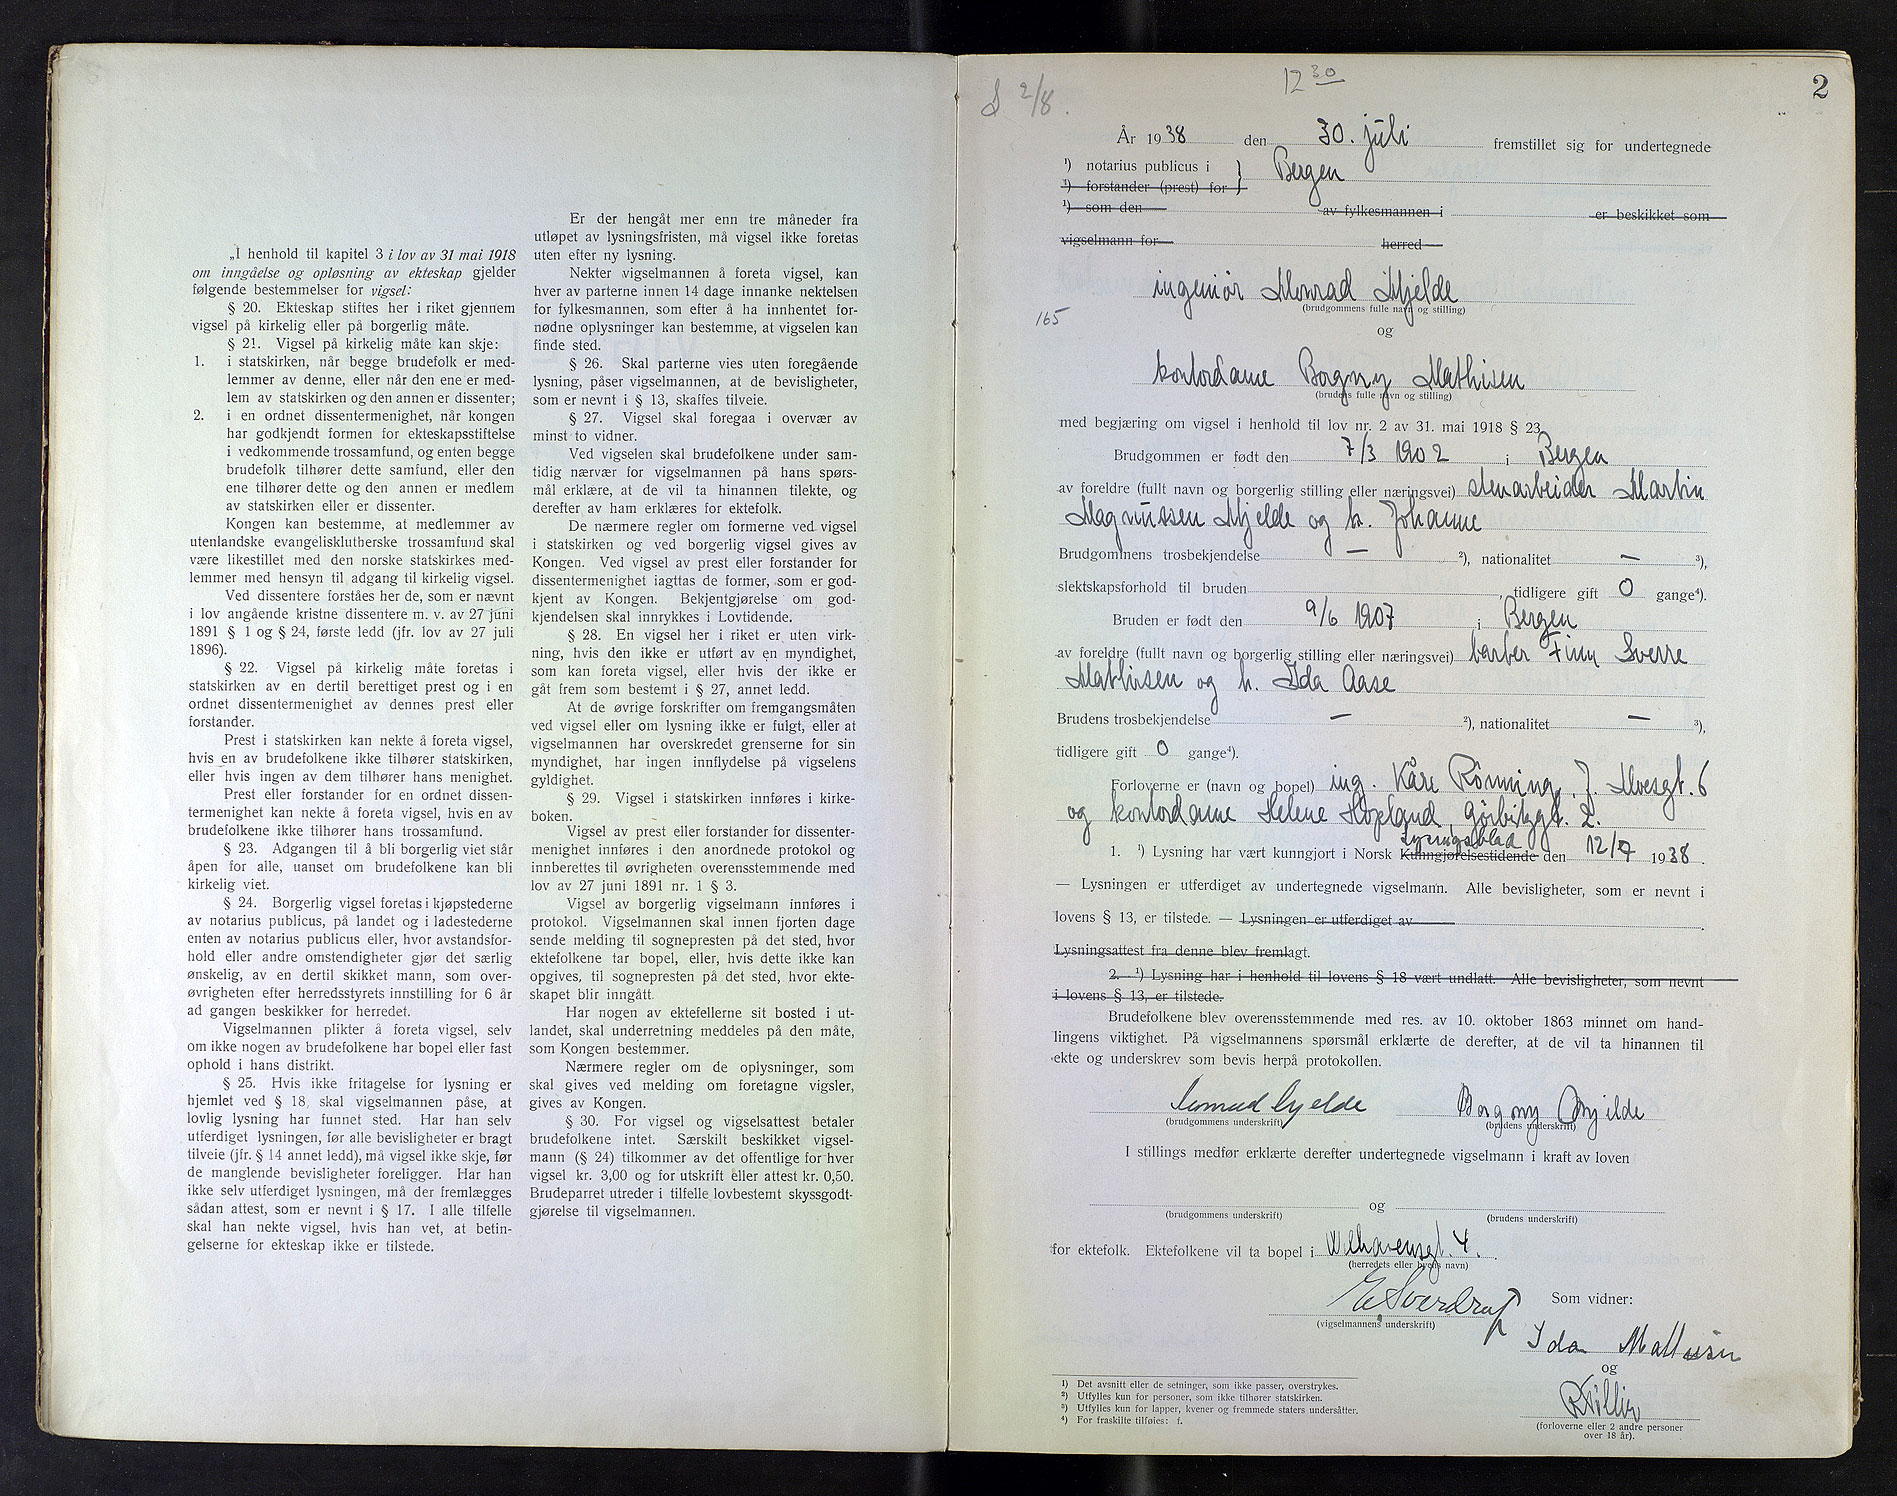 „I henhold til kapitel 3 i lov av 31 mai 1918
om inngåelse og opløsning av ekteskap gjelder
følgende bestemmelser for vigsel:
§ 20. Ekteskap stiftes her i riket gjennem
vigsel på kirkelig eller på borgerlig måte.
§ 21. Vigsel på kirkelig måte kan skje:
1. i statskirken, når begge brudefolk er med-
lemmer av denne, eller når den ene er med-
lem av statskirken og den annen er dissenter;
2. i en ordnet dissentermenighet, når kongen
har godkjendt formen for ekteskapsstiftelse
i vedkommende trossamfund, og enten begge
brudefolk tilhører dette samfund, eller den
ene tilhører dette og den annen er medlem
av statskirken eller er dissenter.
Kongen kan bestemme, at medlemmer av
utenlandske evangelisklutherske trossamfund skal
være likestillet med den norske statskirkes med-
lemmer med hensyn til adgang til kirkelig vigsel.
Ved dissentere forståes her de, som er nævnt
i lov angående kristne dissentere m. v. av 27 juni
1891 § 1 og § 24, første ledd (jfr. lov av 27 juli
1896).
§ 22. Vigsel på kirkelig måte foretas i
statskirken av en dertil berettiget prest og i en
ordnet dissentermenighet av dennes prest eller
forstander.
Prest i statskirken kan nekte å foreta vigsel,
hvis en av brudefolkene ikke tilhører statskirken,
eller hvis ingen av dem tilhører hans menighet.
Prest eller forstander for en ordnet dissen-
termenighet kan nekte å foreta vigsel, hvis en av
brudefolkene ikke tilhører hans trossamfund.
§ 23. Adgangen til å bli borgerlig viet står
åpen for alle, uanset om brudefolkene kan bli
kirkelig viet.
§ 24. Borgerlig vigsel foretas i kjøpstederne
av notarius publicus, på landet og i ladestederne
enten av notarius publicus eller, hvor avstandsfor-
hold eller andre omstendigheter gjør det særlig
ønskelig, av en dertil skikket mann, som over-
øvrigheten efter herredsstyrets innstilling for 6 år
ad gangen beskikker for herredet.
Vigselmannen plikter å foreta vigsel, selv
om ikke nogen av brudefolkene har bopel eller fast
ophold i hans distrikt.
§ 25. Hvis ikke fritagelse for lysning er
hjemlet ved § 18, skal vigselmannen påse, at
lovlig lysning har funnet sted. Har han selv
utferdiget lysningen, før alle bevisligheter er bragt
tilveie (jfr. § 14 annet ledd), må vigsel ikke skje, før
de manglende bevisligheter foreligger. Har han
ikke selv utferdiget lysningen, må der fremlægges
sådan attest, som er nevnt i § 17. I alle tilfelle
skal han nekte vigsel, hvis han vet, at betin-
gelserne for ekteskap ikke er tilstede.
Er der hengåt mer enn tre måneder fra
utløpet av lysningsfristen, må vigsel ikke foretas
uten efter ny lysning.
Nekter vigselmannen å foreta vigsel, kan
hver av parterne innen 14 dage innanke nektelsen
for fylkesmannen, som efter å ha innhentet for-
nødne oplysninger kan bestemme, at vigselen kan
finde sted.
§ 26. Skal parterne vies uten foregående
lysning, påser vigselmannen, at de bevisligheter,
som er nevnt i § 13, skaffes tilveie.
§ 27. Vigsel skal foregaa i overvær av
minst to vidner.
Ved vigselen skal brudefolkene under sam-
tidig nærvær for vigselmannen på hans spørs-
mål erklære, at de vil ta hinannen tilekte, og
derefter av ham erklæres for ektefolk.
De nærmere regler om formerne ved vigsel
i statskirken og ved borgerlig vigsel gives av
Kongen. Ved vigsel av prest eller forstander for
dissentermenighet iagttas de former, som er god-
kjent av Kongen. Bekjentgjørelse om god-
kjendelsen skal innrykkes i Lovtidende.
§ 28. En vigsel her i riket er uten virk-
ning, hvis den ikke er utført av en myndighet,
som kan foreta vigsel, eller hvis der ikke er
gåt frem som bestemt i § 27, annet ledd.
At de øvrige forskrifter om fremgangsmåten
ved vigsel eller om lysning ikke er fulgt, eller at
vigselmannen har overskredet grenserne for sin
myndighet, har ingen innflydelse på vigselens
gyldighet.
§ 29. Vigsel i statskirken innføres i kirke-
boken.
Vigsel av prest eller forstander for dissenter-
menighet innføres i den anordnede protokol og
innberettes til øvrigheten overensstemmende med
lov av 27 juni 1891 nr. 1 § 3.
Vigsel av borgerlig vigselmann innføres i
protokol. Vigselmannen skal innen fjorten dage
sende melding til sognepresten på det sted, hvor
ektefolkene tar bopel, eller, hvis dette ikke kan
opgives, til sognepresten på det sted, hvor ekte-
skapet blir inngått.
Har nogen av ektefellerne sit bosted i ut-
landet, skal underretning meddeles på den måte,
som Kongen bestemmer.
Nærmere regler om de oplysninger, som
skal gives ved melding om foretagne vigsler,
gives av Kongen.
§ 30. For vigsel og vigselsattest betaler
brudefolkene intet. Særskilt beskikket vigsel-
mann (§ 24) tilkommer av det offentlige for hver
vigsel kr. 3,00 og for utskrift eller attest kr. 0,50.
Brudeparret utreder i tilfelle lovbestemt skyssgodt-
gjørelse til vigselmannen.
2/8.
12 30
2
År 1938 den 30. juli fremstillet sig for undertegnede
¹) notarius publicus i } Bergen
¹) forstander (prest) for
¹) som den av fylkesmannen i er beskikket som
vigselmann for herred
ingeniør Monrad Mjelde
(brudgommens fulle navn og stilling)
165
og
kontordame Borgny Mathisen
(brudens fulle navn og stilling)
med begjæring om vigsel i henhold til lov nr. 2 av 31. mai 1918 § 23.
Brudgommen er født den 7/3 1902 i Bergen
av foreldre (fullt navn og borgerlig stilling eller næringsvei) stenarbeider Martin
Magnussen Mjelde og h. Johanne
Brudgommens trosbekjendelse — ²), nationalitet — ³),
slektskapsforhold til bruden , tidligere gift 0 gange⁴).
Bruden er født den 9/6 1907 i Bergen
av foreldre (fullt navn og borgerlig stilling eller næringsvei) barber Finn Sverre
Mathisen og h. Ida Aase
Brudens trosbekjendelse — ²), nationalitet — ³),
tidligere gift 0 gange⁴).
Forloverne er (navn og bopel) ing. Kåre Rönning, J. 6
og kontordame Helene Hopland, 2.
lysningsblad
1. ¹) Lysning har vært kunngjort i Norsk Kunngjørelsestidende den 12/7 1938.
— Lysningen er utferdiget av undertegnede vigselmann. Alle bevisligheter, som er nevnt i
lovens § 13, er tilstede. — Lysningen er utferdiget av
Lysningsattest fra denne blev fremlagt.
2. ¹) Lysning har i henhold til lovens § 18 vært undlatt. Alle bevisligheter, som nevnt
i lovens § 13, er tilstede.
Brudefolkene blev overensstemmende med res. av 10. oktober 1863 minnet om hand-
lingens viktighet. På vigselmannens spørsmål erklærte de derefter, at de vil ta hinannen til
ekte og underskrev som bevis herpå protokollen.
Monrad Mjelde Borgny Mjelde
(brudgommens underskrift) (brudens underskrift)
I stillings medfør erklærte derefter undertegnede vigselmann i kraft av loven
og
(brudgommens underskrift) (brudens underskrift)
for ektefolk. Ektefolkene vil ta bopel i Welhavensgt. 4.
(herredets eller byens navn)
E Sverdrup
(vigselmannens underskrift)
Som vidner:
Ida Mathisen
og
(forloverne eller 2 andre personer
over 18 år).
¹) Det avsnitt eller de setninger, som ikke passer, overstrykes.
²) Utfylles kun for personer, som ikke tilhører statskirken.
³) Utfylles kun for lapper, kvener og fremmede staters undersåtter.
⁴) For fraskilte tilføies: f.